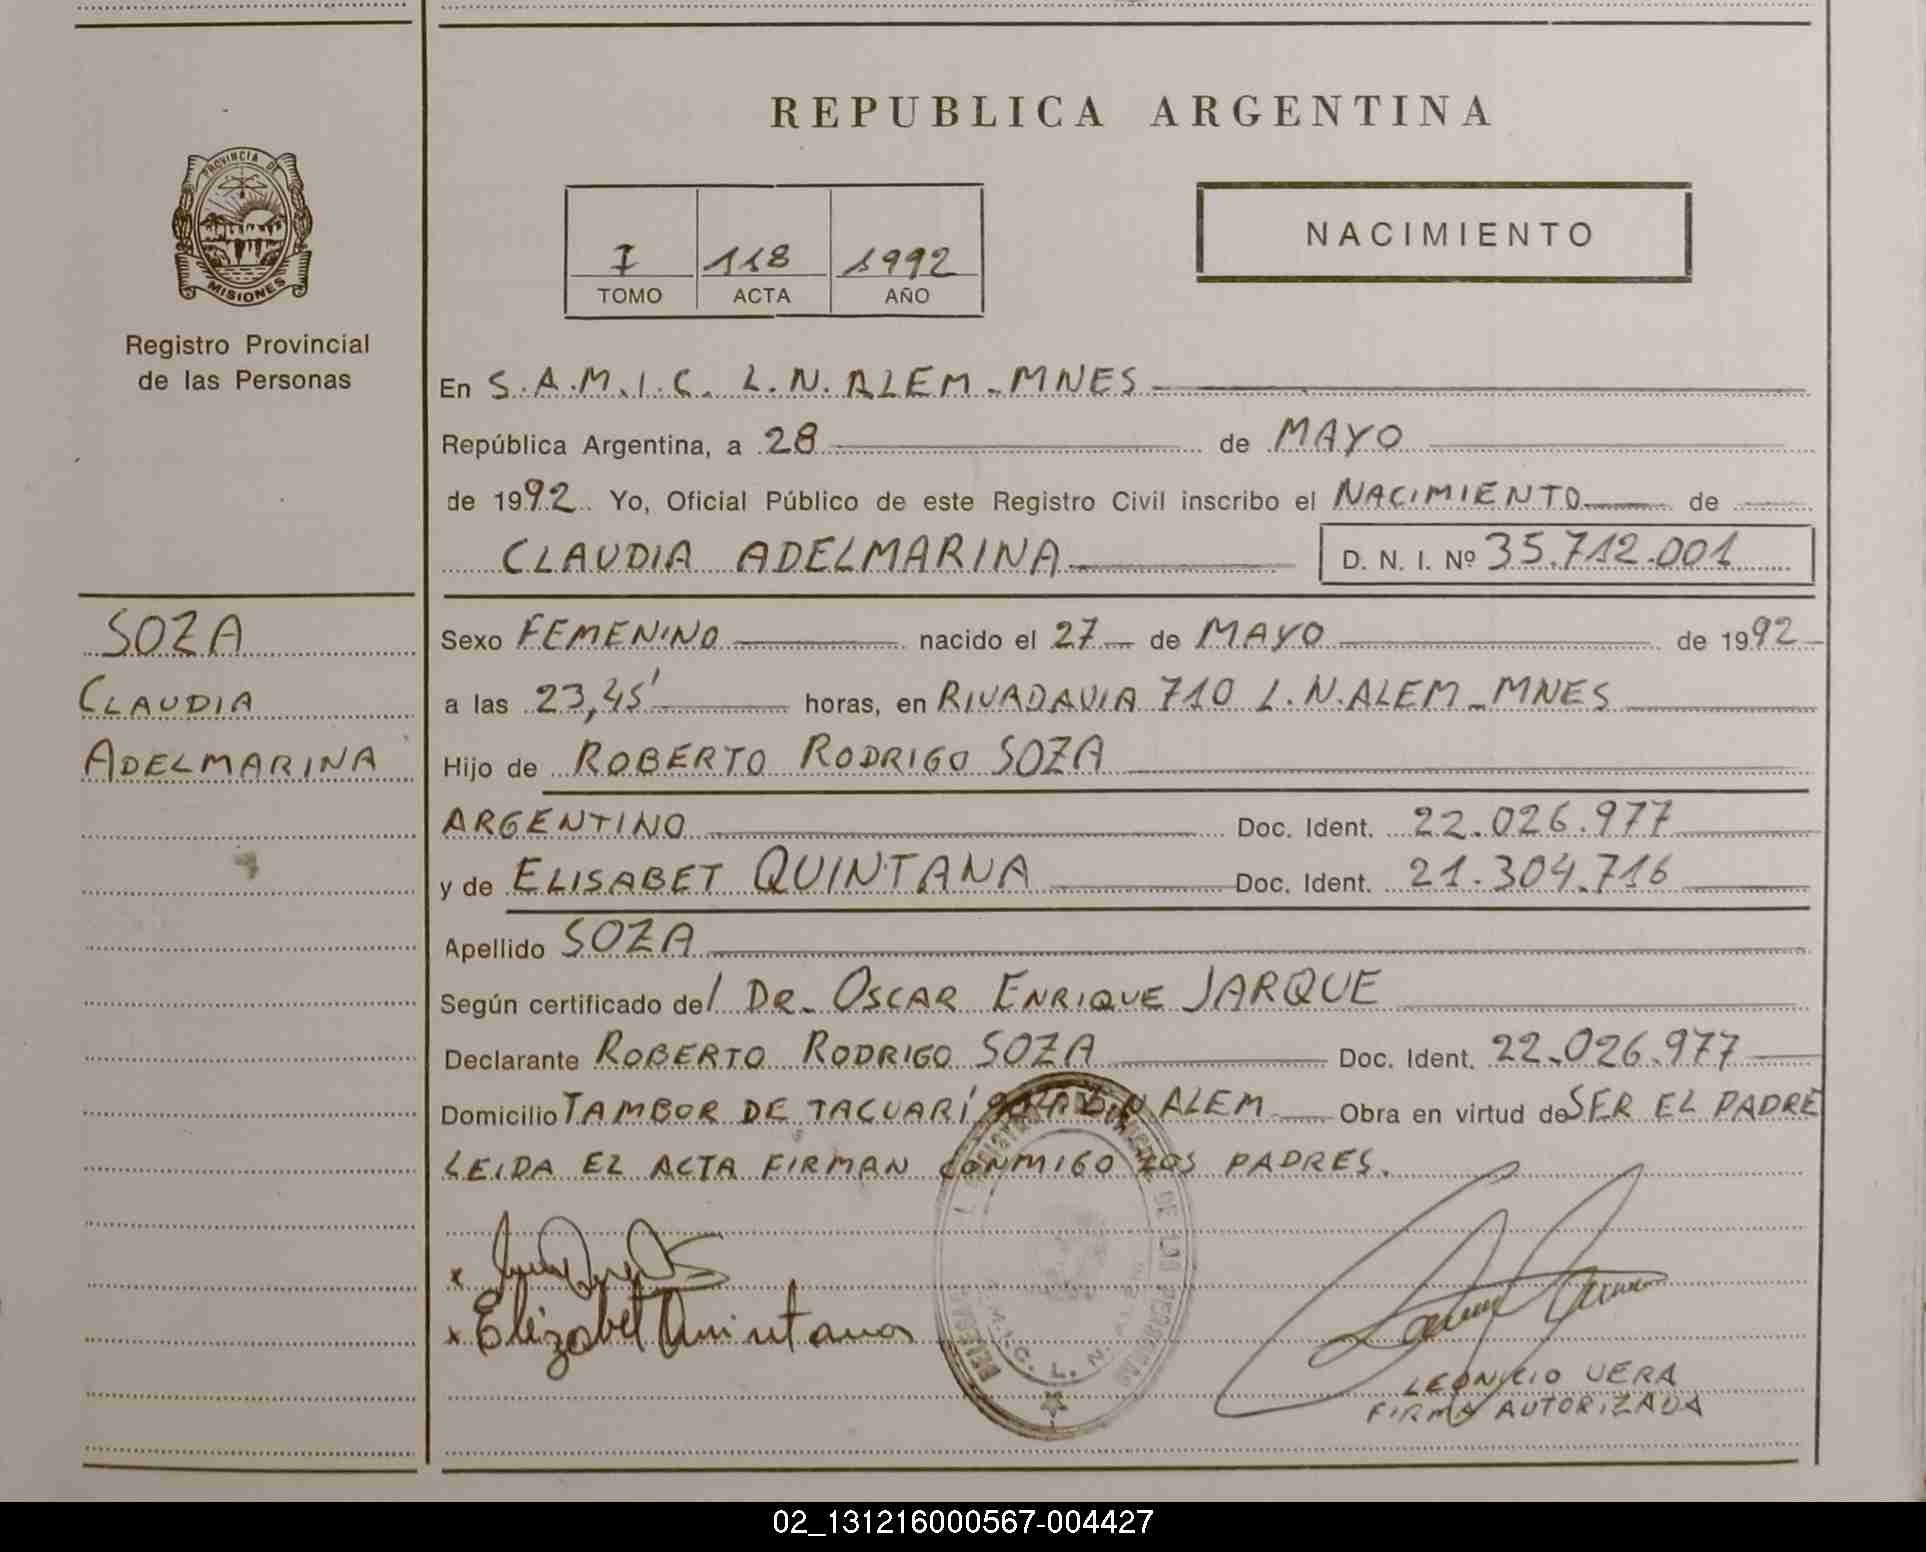 REPUBLICA ARGENTINA
PROVINCIA DE
MISIONES
Registro Provincial
de las Personas
I 118 1992
TOMO ACTA AÑO
NACIMIENTO
En S.A.M.I.C. L.N. ALEM - MNES
República Argentina, a 28 de MAYO
de 1992. Yo, Oficial Público de este Registro Civil inscribo el NACIMIENTO de
CLAUDIA ADELMARINA D. N. I. Nº 35.712.001
SOZA
CLAUDIA
ADELMARINA
Sexo FEMENINO nacido el 27 de MAYO de 1992
a las 23,45' horas, en RIVADAVIA 710 L.N.ALEM - MNES
Hijo de ROBERTO RODRIGO SOZA
ARGENTINO Doc. Ident. 22.026.977
y de ELISABET QUINTANA Doc. Ident. 21.304.716
Apellido SOZA
Según certificado del DR. OSCAR ENRIQUE JARQUE
Declarante ROBERTO RODRIGO SOZA Doc. Ident. 22.026.977
Domicilio TAMBOR DE TACUARÍ L.N ALEM Obra en virtud de SER EL PADRE
LEIDA EL ACTA FIRMAN CONMIGO LOS PADRES.
x
x Elizabet Quintana
DE LAS PERSONAS
S.A.M.I.C. L. N.
LEONICIO VERA
FIRMA AUTORIZADA
02_131216000567-004427